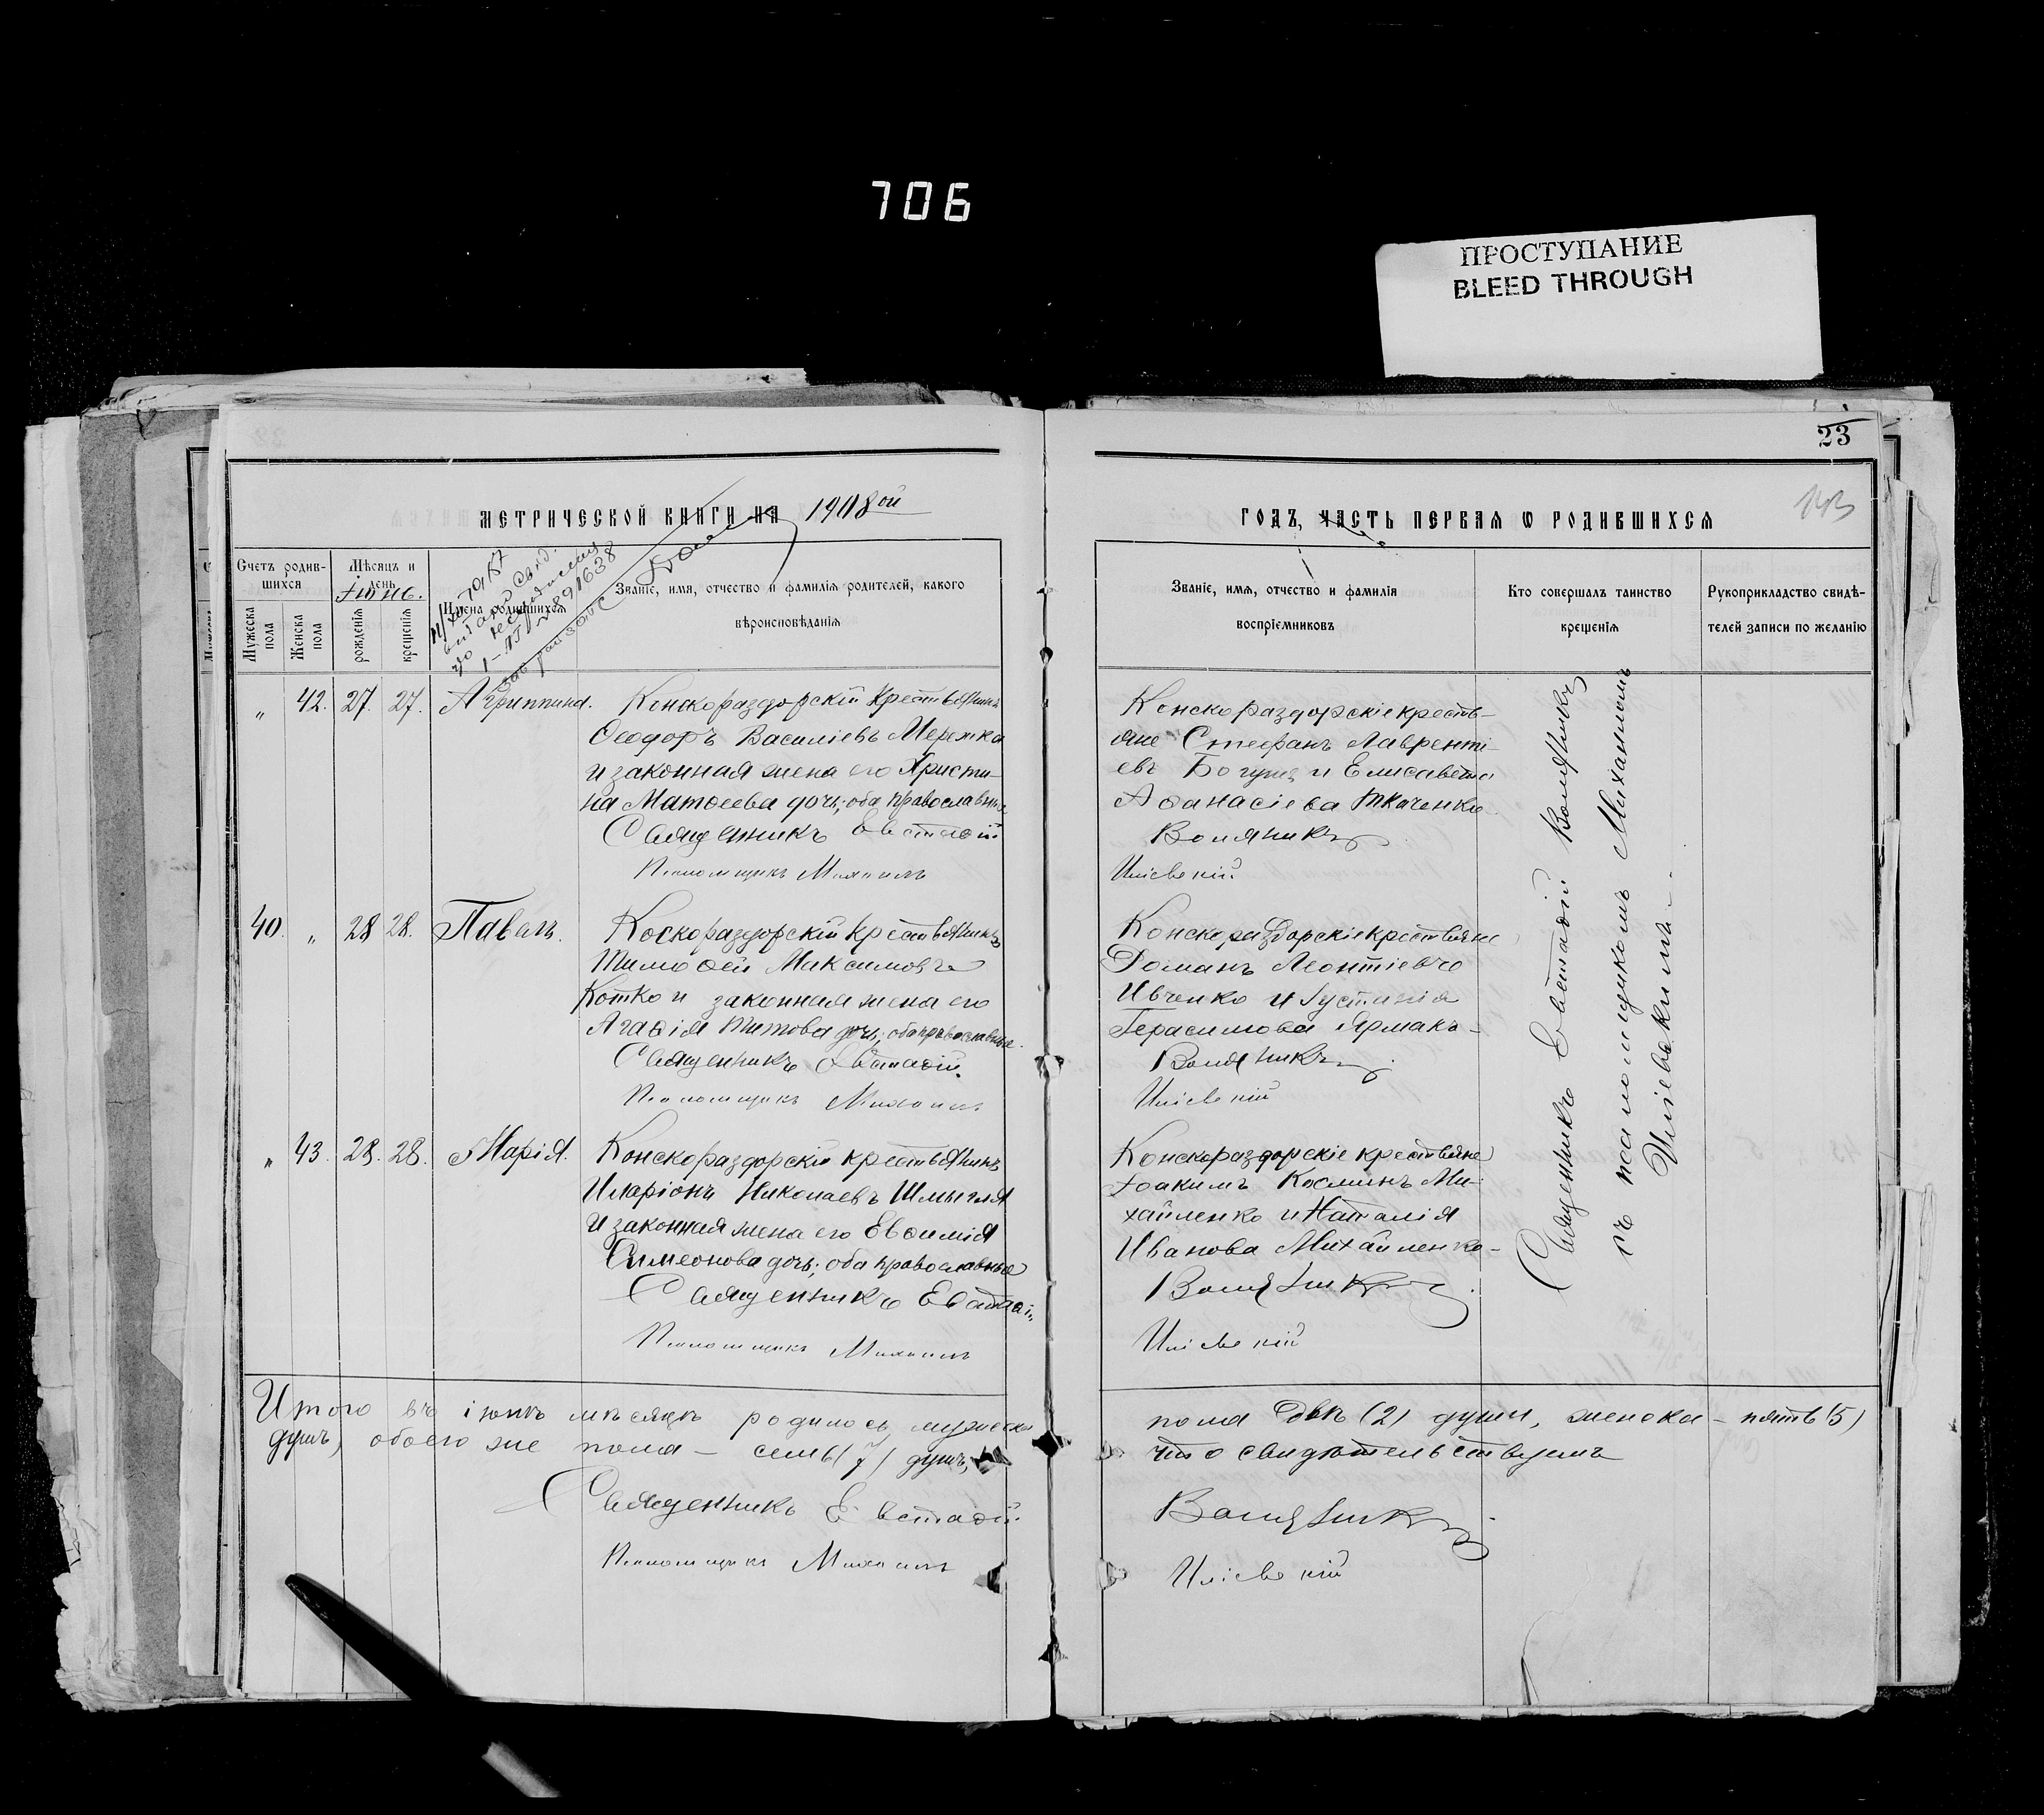 706
ПРОСТУПАНИЕ
BLEED THROUGH
23
143
МЕТРИЧЕСКОЙ КНИГИ НА 1908 ой
ГОДЪ, ЧАСТЬ ПЕРВАЯ Ѡ РОДИВШИХСЯ
Счетъ родив-
шихся
Мужеска пола
Женска пола
Мѣсяцъ и
день
Іюнь.
рожденія
крещенія
Имена родившихся
Званіе, имя, отчество и фамилія родителей, какого
вѣроисповѣданія
Званіе, имя, отчество и фамилія
воспріемниковъ
Кто совершалъ таинство
крещенія
Рукоприкладство свидѣ-
телей записи по желанію
„ 42. 27. 27. Агриппина. Конскораздорскій крестьянинъ
Ѳеодоръ Василіевъ Мережка
и законная жена его Христи-
на Матѳеева дочь; оба православные
Священникъ Евстаѳій
Псаломщикъ Михаилъ
Конскораздорскіе кресть-
яне Стефанъ Лавренті-
евъ Богуш и Елисавета
Аѳанасіева Ткаченко
Воляникъ
Иліевскій
40. „ 28 28. Павелъ. Коскораздорскій крестьянинъ
Тимоѳей Максимовъ
Котко и законная жена его
Агаѳія Титова дочь; оба православные.
Священникъ Евстаѳій.
Псаломщикъ Михаилъ
Конскораздорскіе крестьяне
Романъ Леонтіевъ
Ивченко и Іустинія
Герасимова Ярмакъ-
Воляникъ
Иліевскій
„ 43. 28. 28. Марія. Конскораздорскій крестьянинъ
Иларіонъ Николаевъ Шмыгля
и законная жена его Евѳимія
Симеонова дочь; оба православные
Священникъ Евстаѳій
Псаломщикъ Михаилъ
Конскораздорскіе крестьяне
Іоакимъ Косминъ Ми-
хайленко и Наталія
Иванова Михайленко-
Воляникъ
Иліевскій
Священникъ Евстаѳій Воляникъ
съ псаломщикомъ Михаиломъ
Иліевскимъ.-
Итого въ іюнѣ мѣсяцѣ родилось мужеска пола двѣ (2) души, женска - пять (5)
душъ, обоего же пола - семь (7) душъ, что свидѣтельствуемъ
Священникъ Евстаѳій Воляникъ
Псаломщикъ Михаилъ Иліевскій